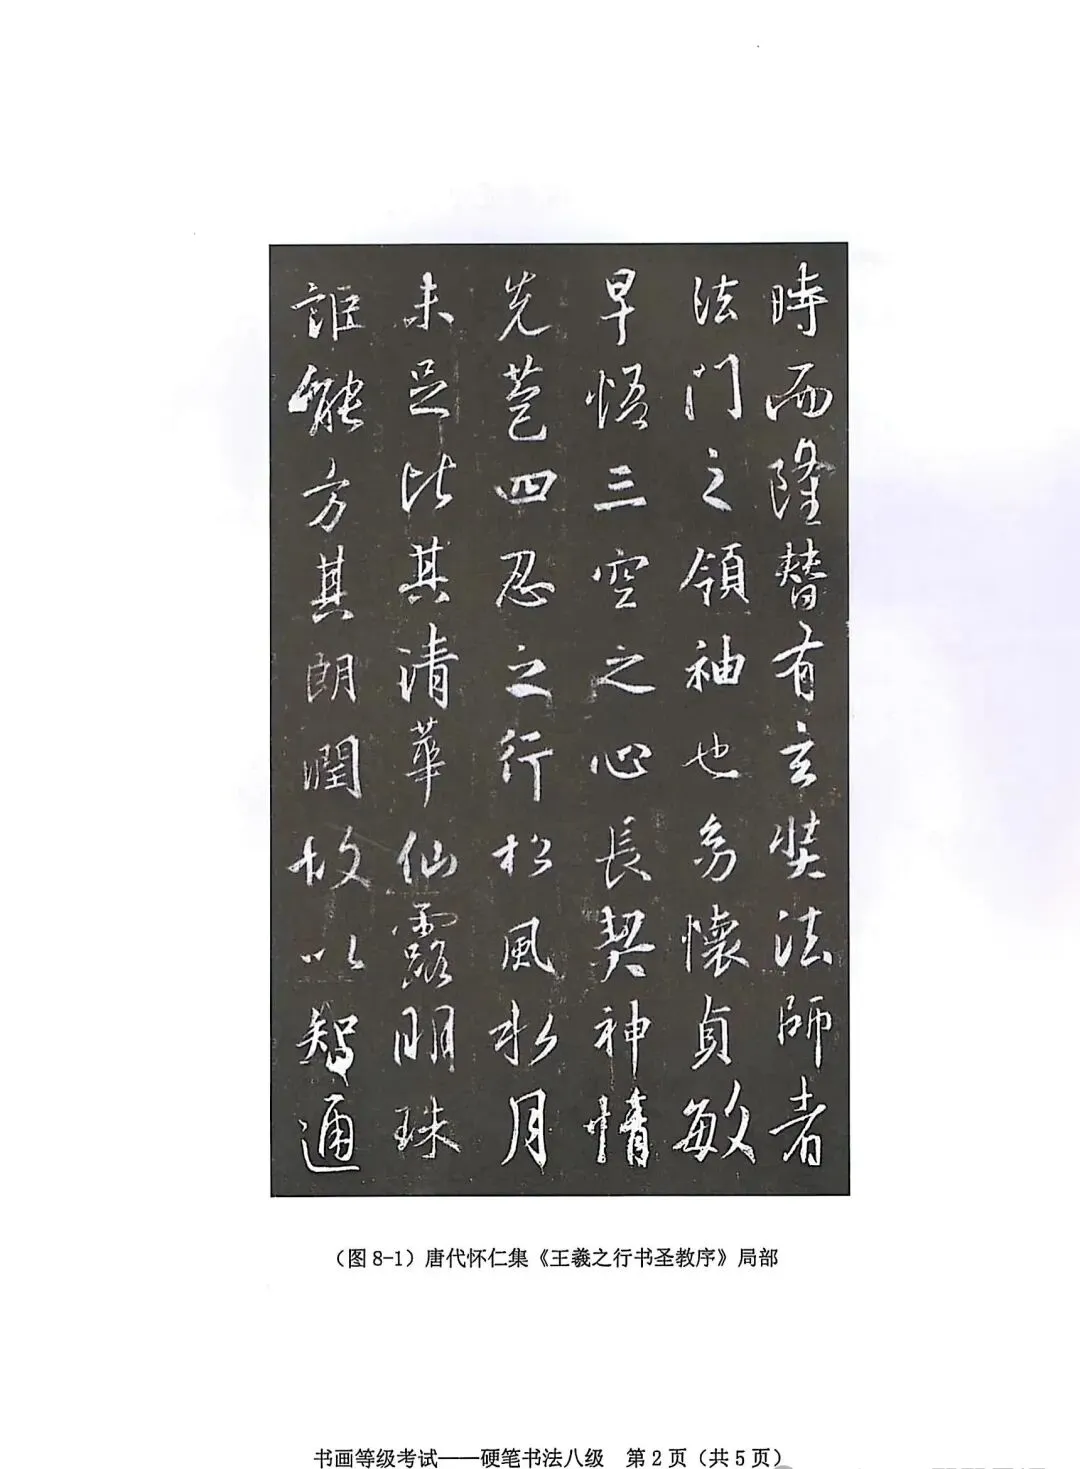 時而隆替有玄奘法師者
法門之領袖也㓜懷貞敏
早悟三空之心長契神情
先苞四忍之行松風水月
未足比其清華仙露明珠
詎能方其朗潤故以智通
（图 8-1）唐代怀仁集《王羲之行书圣教序》局部
书画等级考试——硬笔书法八级 第 2 页（共 5 页）